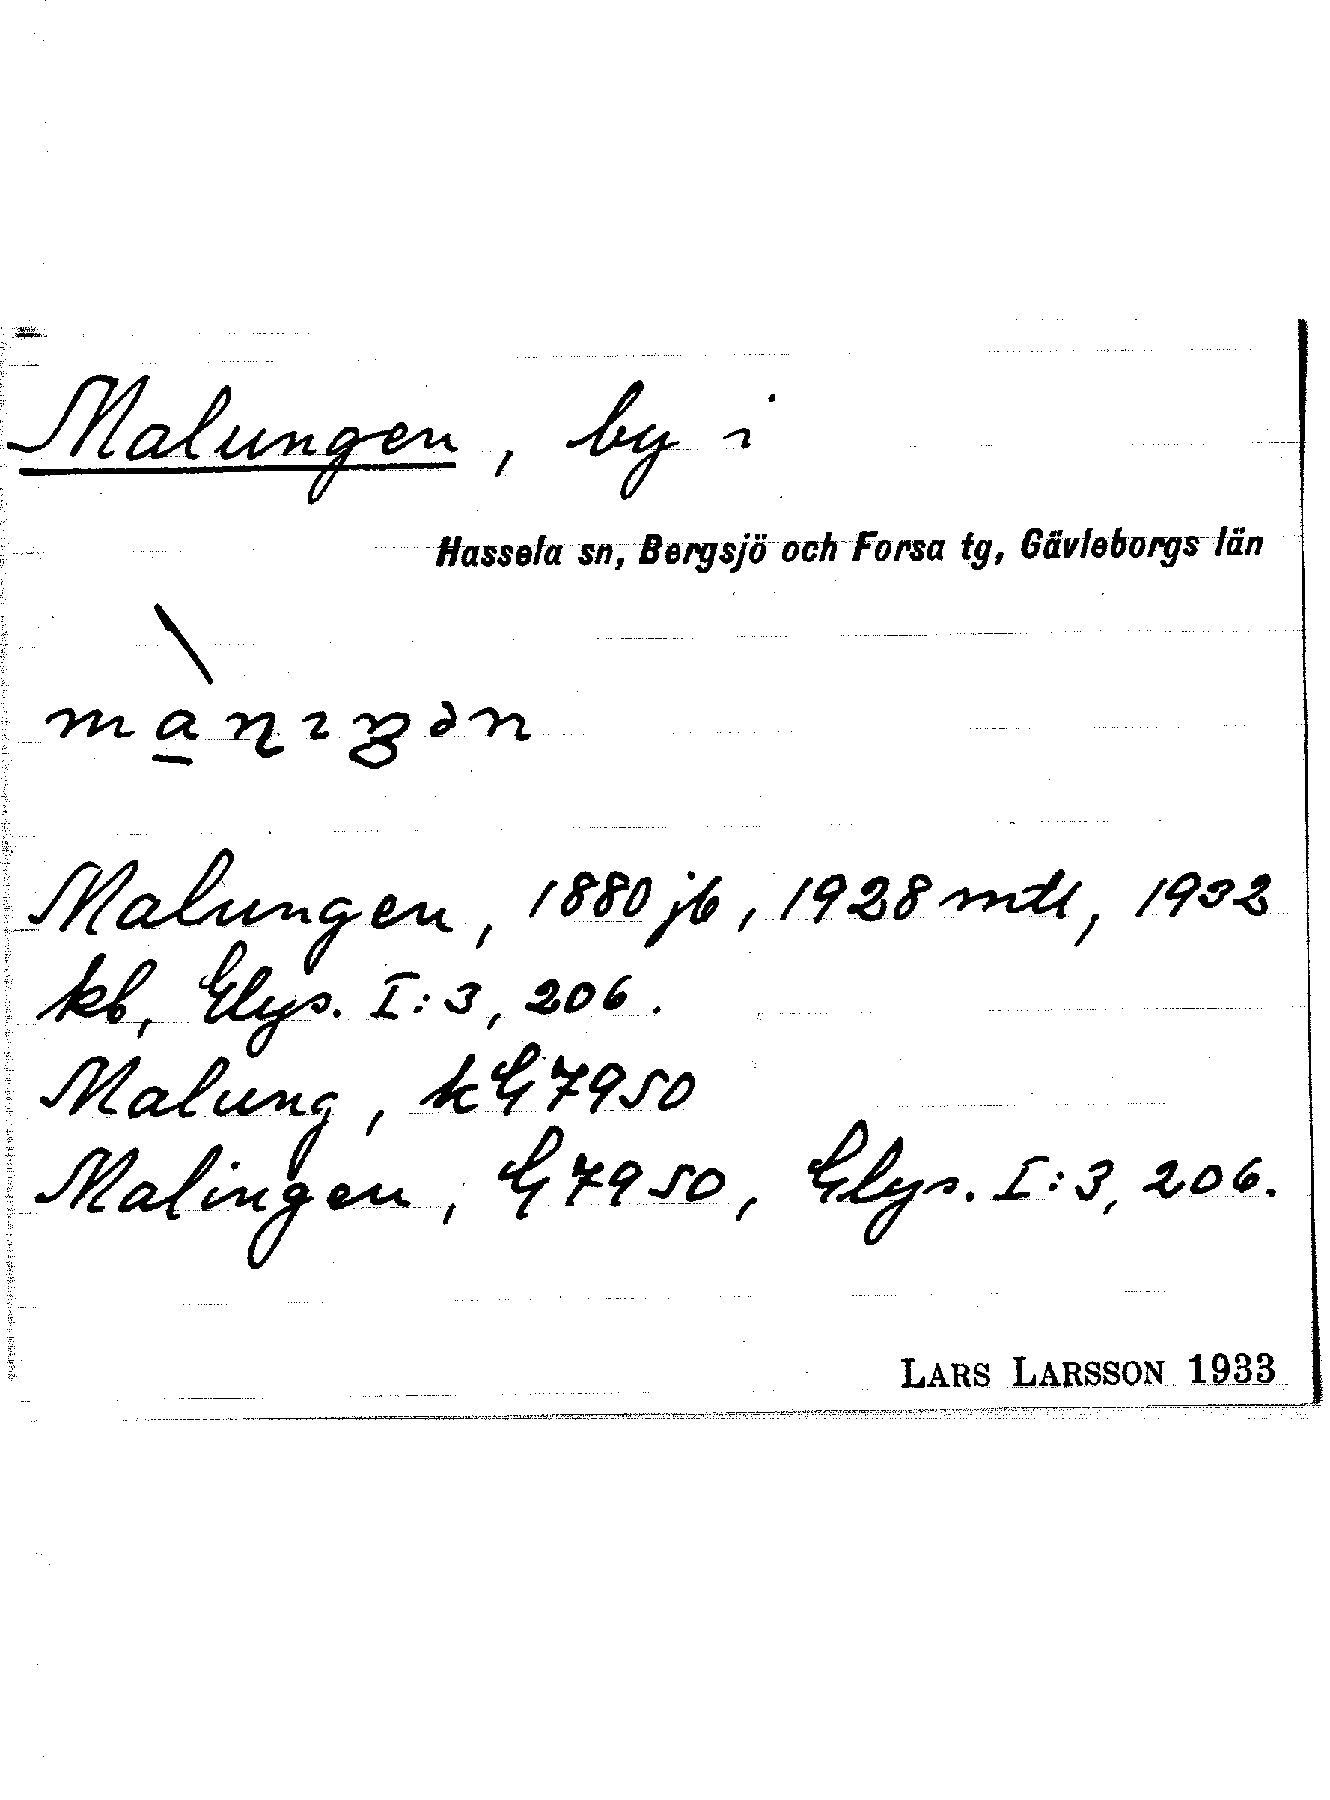 Malungen, by i
Hassela sn, Bergsjö och Forsa tg, Gävleborgs län
Malungen, 1880 jb, 1928 mtl, 1932
kb, Elys. I:3, 206.
Malung, kG 7950
Malingen, G 7950, Elys. I:3, 206.
LARS LARSSON 1933